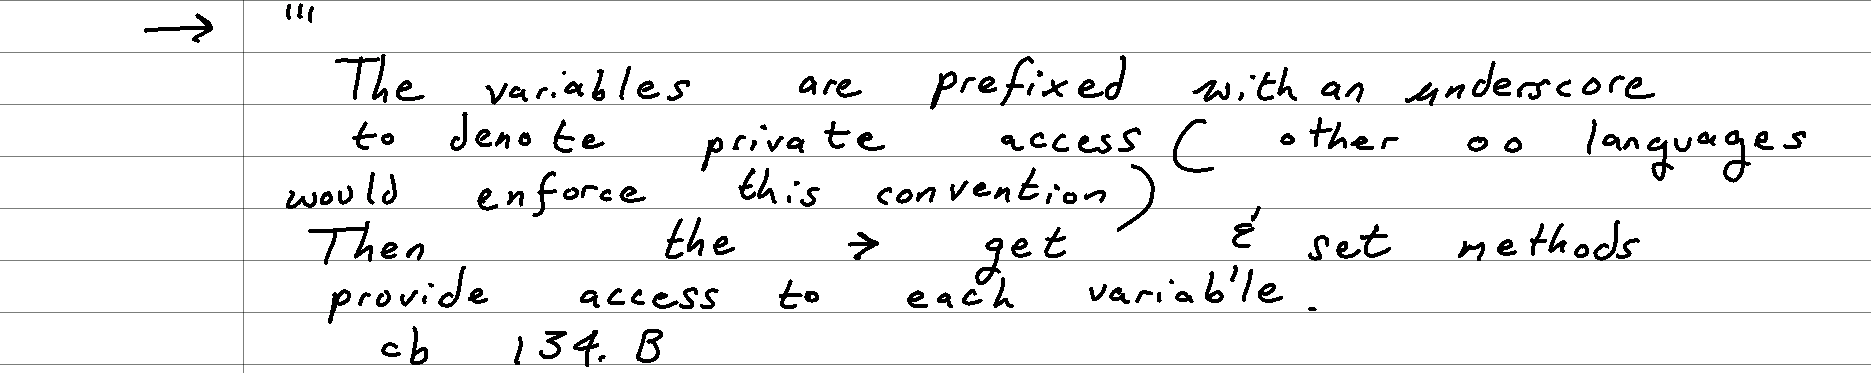 → '''
The variables are prefixed with an underscore
to denote private access ( other oo languages
would enforce this convention )
Then the → get & set methods
provide access to each variable.
cb 134. B